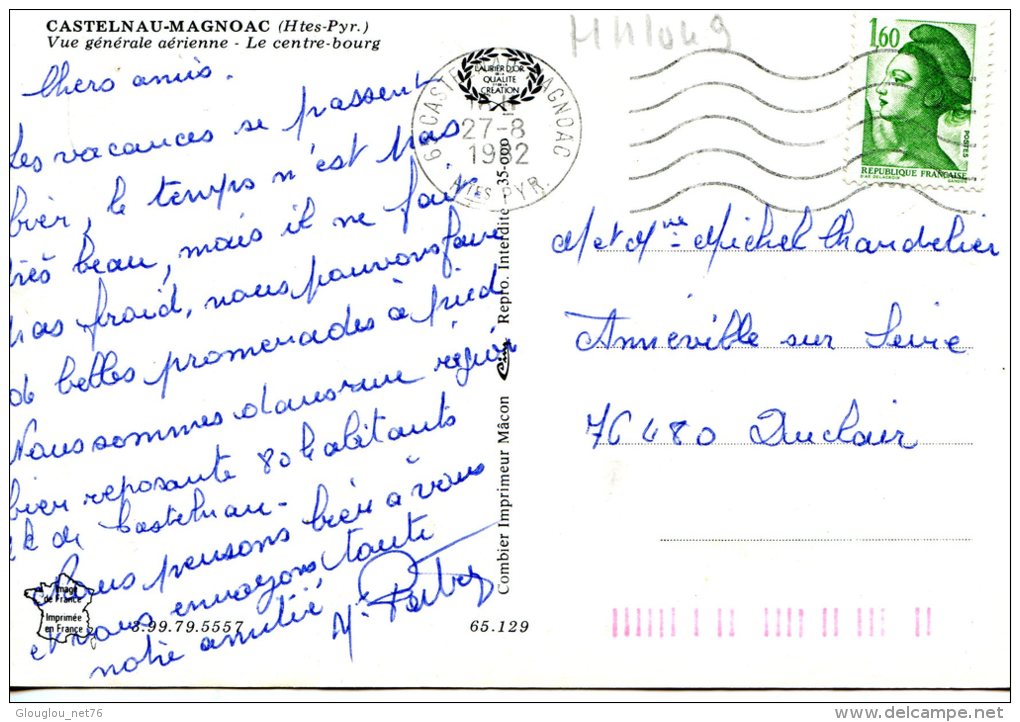 CASTELNAU-MAGNOAC (Htes-Pyr.)
Vue générale aérienne - Le centre-bourg
Chers amis.
Les vacances se passent
bien, le temps n'est pas
très beau, mais il ne fait
pas froid, nous pouvons faire
de belles promenades à pied
Nous sommes dans une région
bien reposante 80 habitants
de Castelnau-
Nous pensons bien à vous
et vous envoyons toute
notre amitié,
LAURIER D'OR
DE LA
QUALITE
CREATION
65 CASTELNAU MAGNOAC
27-8
1982
Htes PYR.
1,60
POSTES
REPUBLIQUE FRANÇAISE
D'AP. DELACROIX
GANDON
M et Mme Michel Chandelier
Anneville sur Seine
76480 Duclair
Combier Imprimeur Mâcon Cim Repro. Interdite - 35-000
Image
de France
Imprimée
en France
3.99.79.5557
65.129
Glouglou_net76
www.delcampe.net